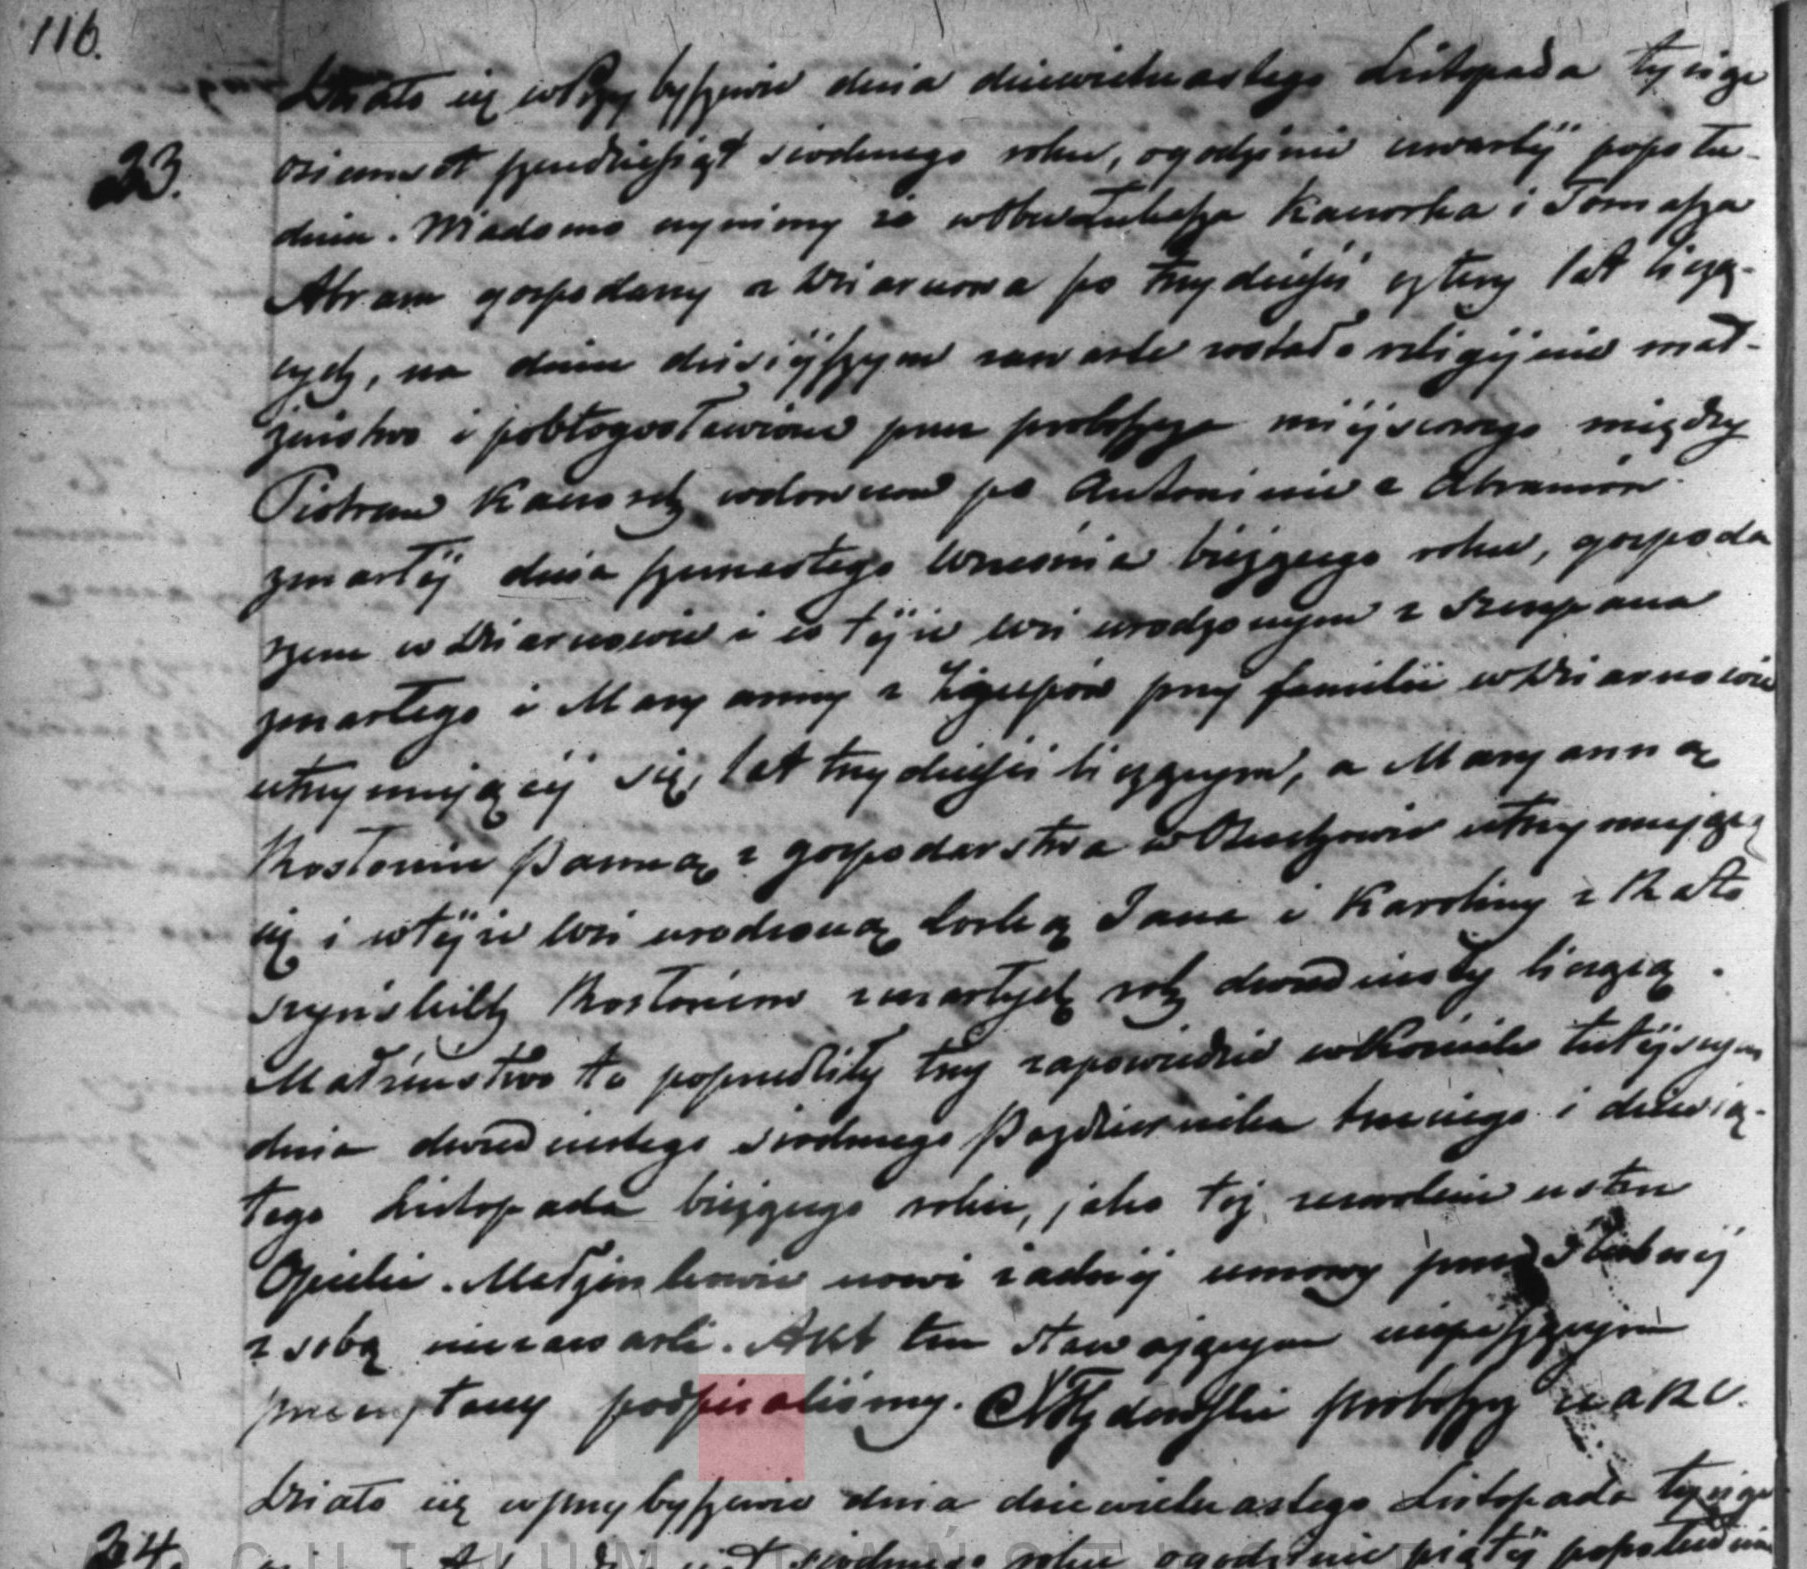 116.
Działo się w Przybyszewie dnia dziewietnastego Listopada tysiąc
23.
osiemset szesdziesiąt siodmego roku, o godzinie czwartéj popołu-
dniu. Wiadomo czynimy że w obec Łukasza Kacorka i Tomasza
Abram gospodarzy z Dziarnowa po trzydzieści cztery lat liczą-
cych, na dniu dzisiéjszym zawarte zostało religijnie mał-
żeństwo i pobłogosławione przez proboszcza miéjscowego między
Piotrem wdowcem po Antoninie z Abramów
zmarłéj dnia szesnastego Września bieżącego roku, gospoda
rzem w Dziarnowie i w téjże wsi urodzonym z Szczepana
zmarłego i Maryanny z przy familii w Dziarnowie
utrzymującéj się, lat trzydzieści liczącym, a Maryanną
panną z gospodarstwa w utrzymującą
się i w téjże wsi urodzoną Corką Jana i Karoliny z
zmarłych rok dwudziesty liczącą.
Małżeństwo to poprzedziły trzy zapowiedzie w Kościele tutéjszym
dnia dwudziestego siodmego Pazdziernika trzeciego i dziewią-
tego Listopada bieżącego roku, jako téż zezwolenie ustne
Opieki. Małżonkowie nowi żadnéj umowy przedślubnéj
z sobą niezawarli. Akt ten stawającym niepiszącym
przeczytany podpisaliśmy. proboszcz
Działo się w Przybyszewie dnia dziewietnastego Listopada tysiąc
24.
siodmego roku o godzinie piątéj popołudniu